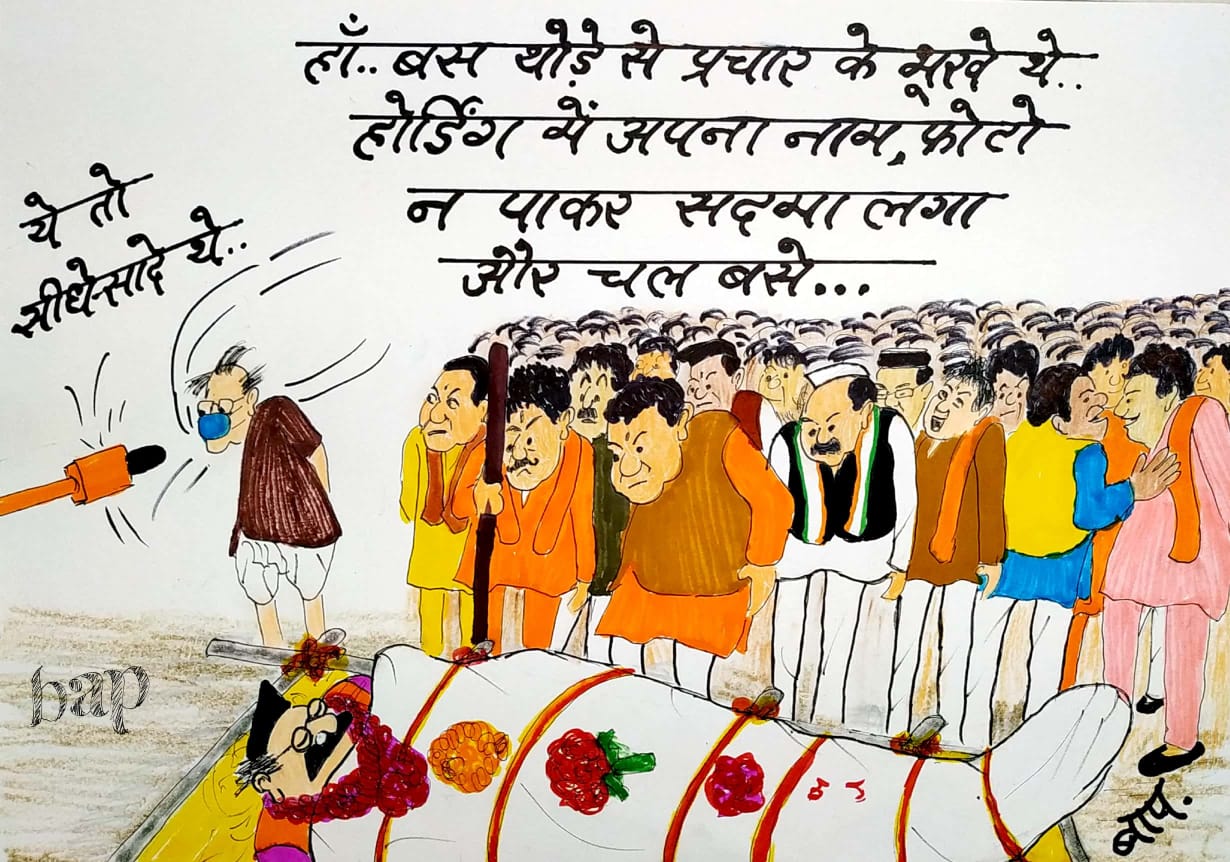 हाँ.. बस थोड़े से प्रचार के भूखे थे..
होर्डिंग में अपना नाम, फोटो
न पाकर सदमा लगा
और चल बसे...
ये तो
सीधे-सादे थे..
bap
बाप.